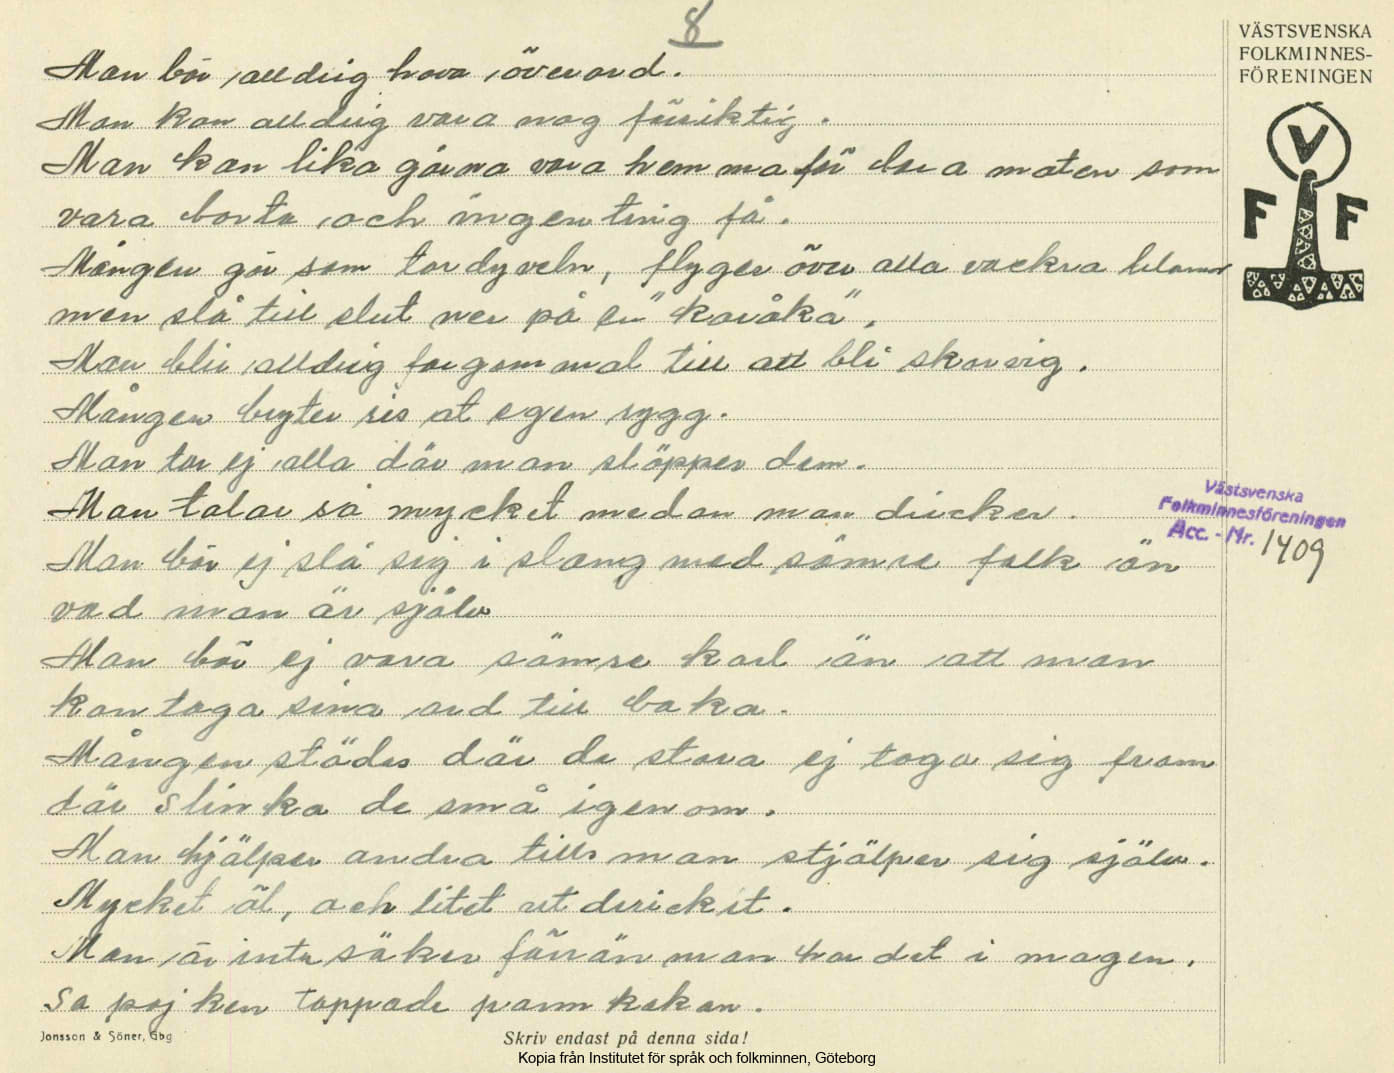 8
VÄSTSVENSKA
FOLKMINNES-
FÖRENINGEN
V
F F
Man bör alldrig hava överord.
Man kan alldrig vara nog försiktig.
Man kan lika gärna vara hemma för bara maten som
vara borta och ingenting få.
Mången gör som tordyveln, flyger över alla vackra blomor
men slå till slut ner på en "koråka".
Man blir alldrig for gammal till att bli skorvig.
Mången bryter ris åt egen rygg.
Man tar ej alla där man släpper dem.
Man talar så mycket medan man dricker.
Man bör ej slå sig i slang med sämre folk än
vad man är själv
Man bör ej vara sämre karl än att man
kan taga sina ord till baka.
Mången städes där de stora ej taga sig fram
där slinka de små igenom.
Man hjälper andra tills man stjälper sig själv.
Mycket öl, och litet ut drickit.
Man är inte säker förrän man har det i magen.
Sa pojken tappade pannkakan.
Västsvenska
Folkminnesföreningen
Acc. - Nr. 1409
Jonsson & Söner, Gbg
Skriv endast på denna sida!
Kopia från Institutet för språk och folkminnen, Göteborg